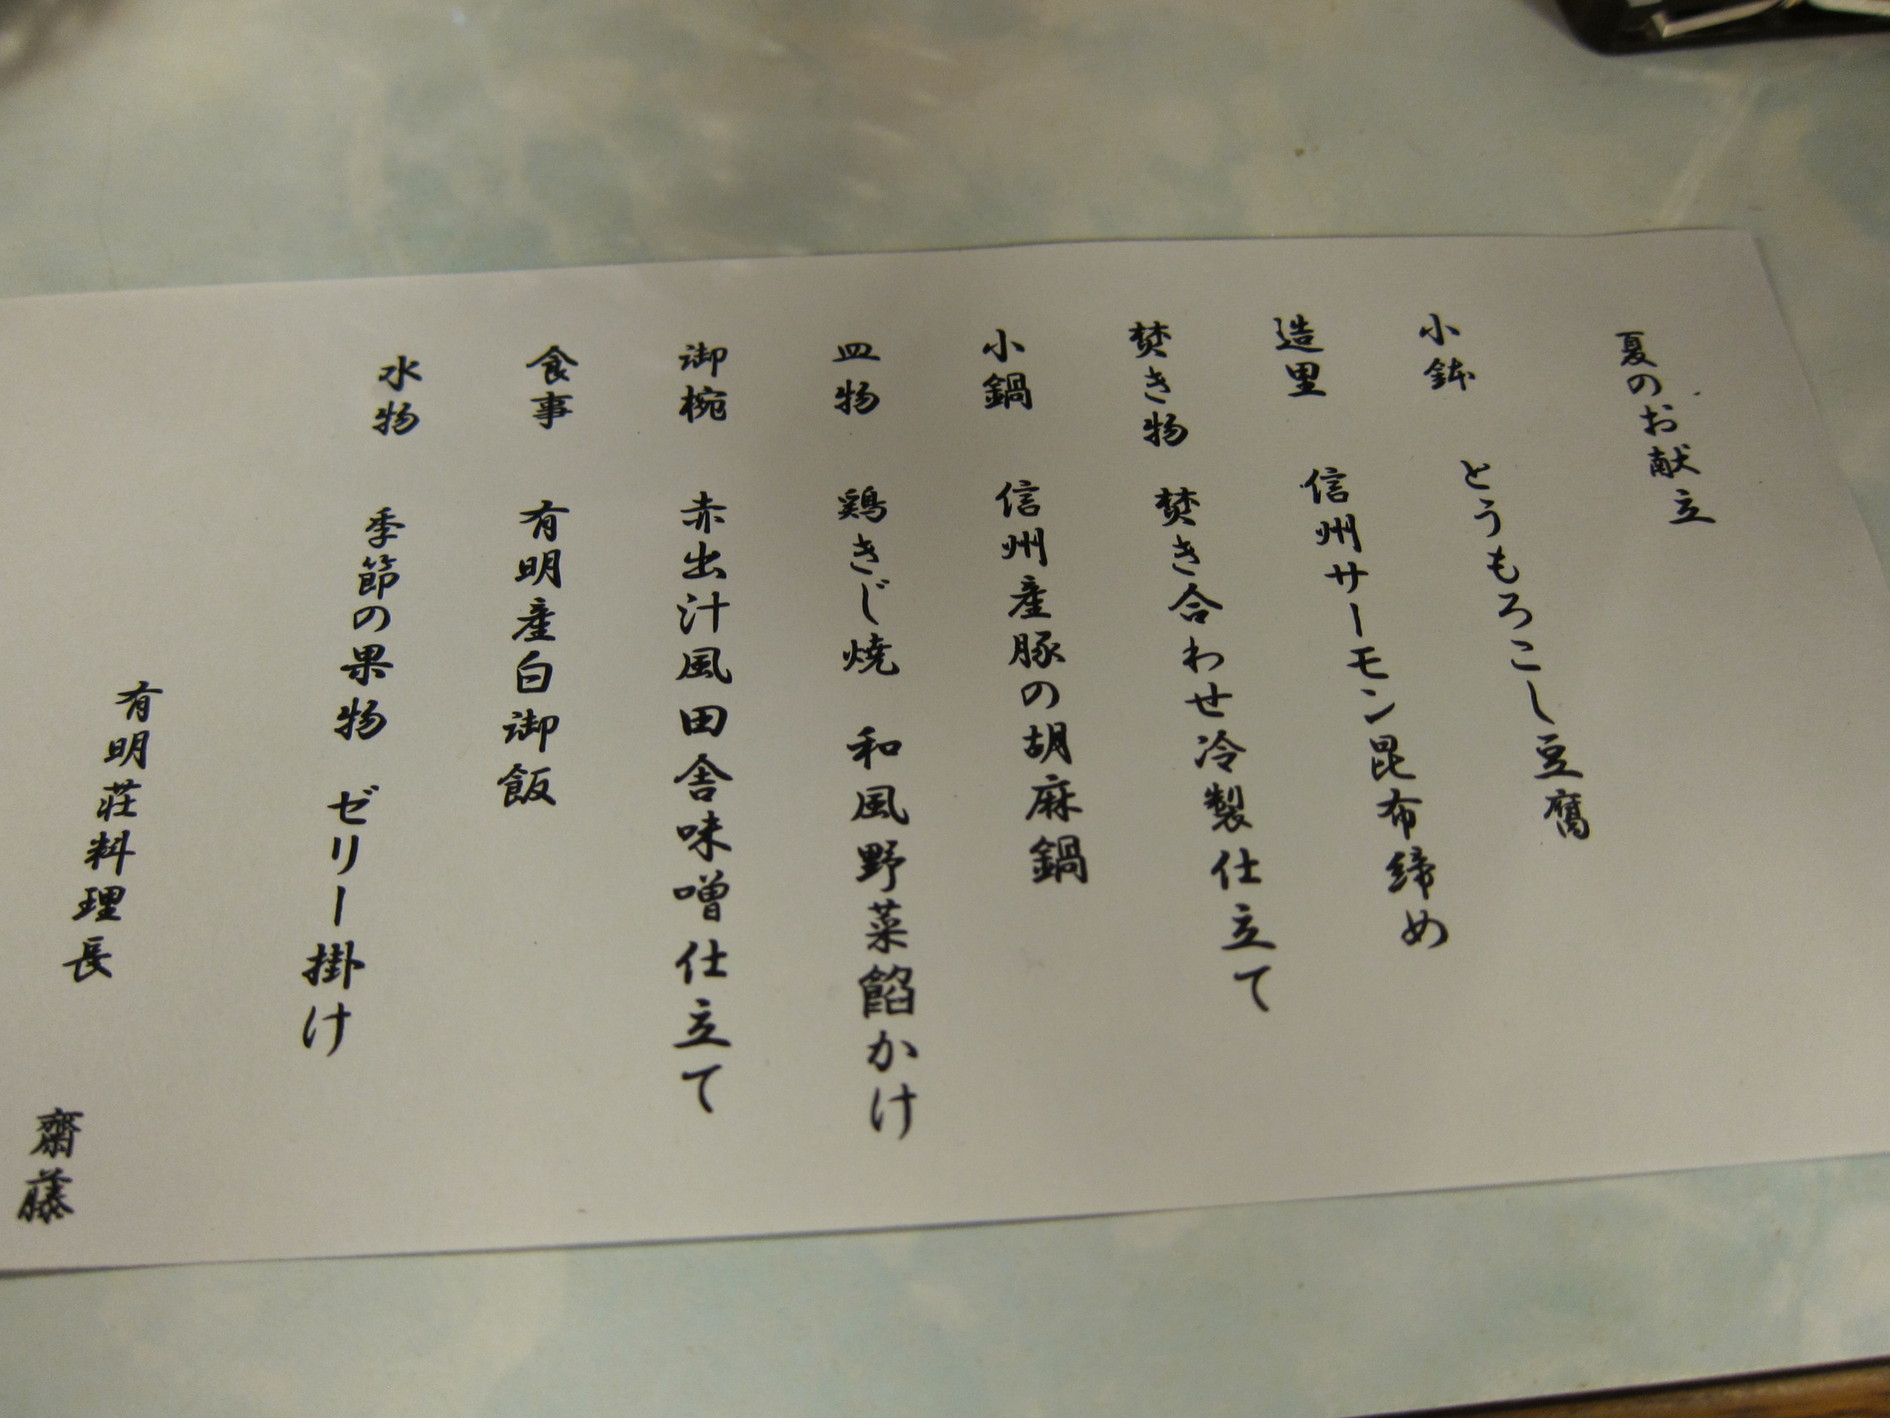 夏のお献立
小鉢　とうもろこし豆腐
造里　信州サーモン昆布締め
焚き物　焚き合わせ冷製仕立て
小鍋　信州産豚の胡麻鍋
皿物　鶏きじ焼　和風野菜餡かけ
御椀　赤出汁風田舎味噌仕立て
食事　有明産白御飯
水物　季節の果物　ゼリー掛け
有明荘料理長　齋藤